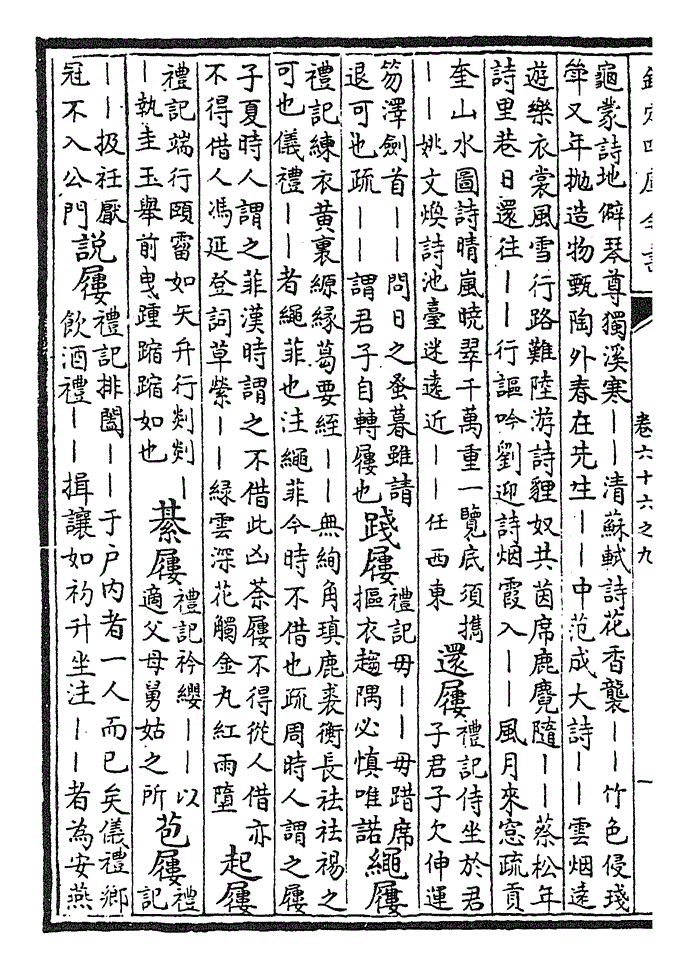 欽定四庫全書
卷六十六之九
龜蒙詩地僻琴尊獨溪寒——清蘇軾詩花香襲——竹色侵琖
斚又年抛造物甄陶外春在先生——中范成大詩——雲烟遠
遊樂衣裳風雪行路難陸游詩貍奴共茵席鹿麑隨——蔡松年
詩里巷日還往——行謳吟劉迎詩烟霞入——風月來窓疏貢
奎山水圖詩晴嵐曉翠千萬重一覽底須擕
——姚文煥詩池臺迷遠近——任西東
還屨
禮記侍坐於君
子君子欠伸運
笏澤劍首——問日之蚤暮雖請
退可也疏——謂君子自轉屨也
踐屨
禮記毋——毋踖席
摳衣趨隅必慎唯諾
繩屨
禮記練衣黄裏縓緣葛要絰——無絇角瑱鹿裘衡長袪袪裼之
可也儀禮——者繩菲也注繩菲今時不借也疏周時人謂之屨
子夏時人謂之菲漢時謂之不借此凶荼屨不得從人借亦
不得借人馮延登詞草縈——緑雲深花觸金丸紅雨墮
起屨
禮記端行頤霤如矢弁行剡剡—
—執圭玉舉前曳踵蹜蹜如也
綦屨
禮記衿纓——以
適父母舅姑之所
苞屨
禮
記
——扱衽厭
冠不入公門
説屨
禮記排闔——于户内者一人而已矣儀禮鄉
飲酒禮——揖讓如初升坐注——者為安燕